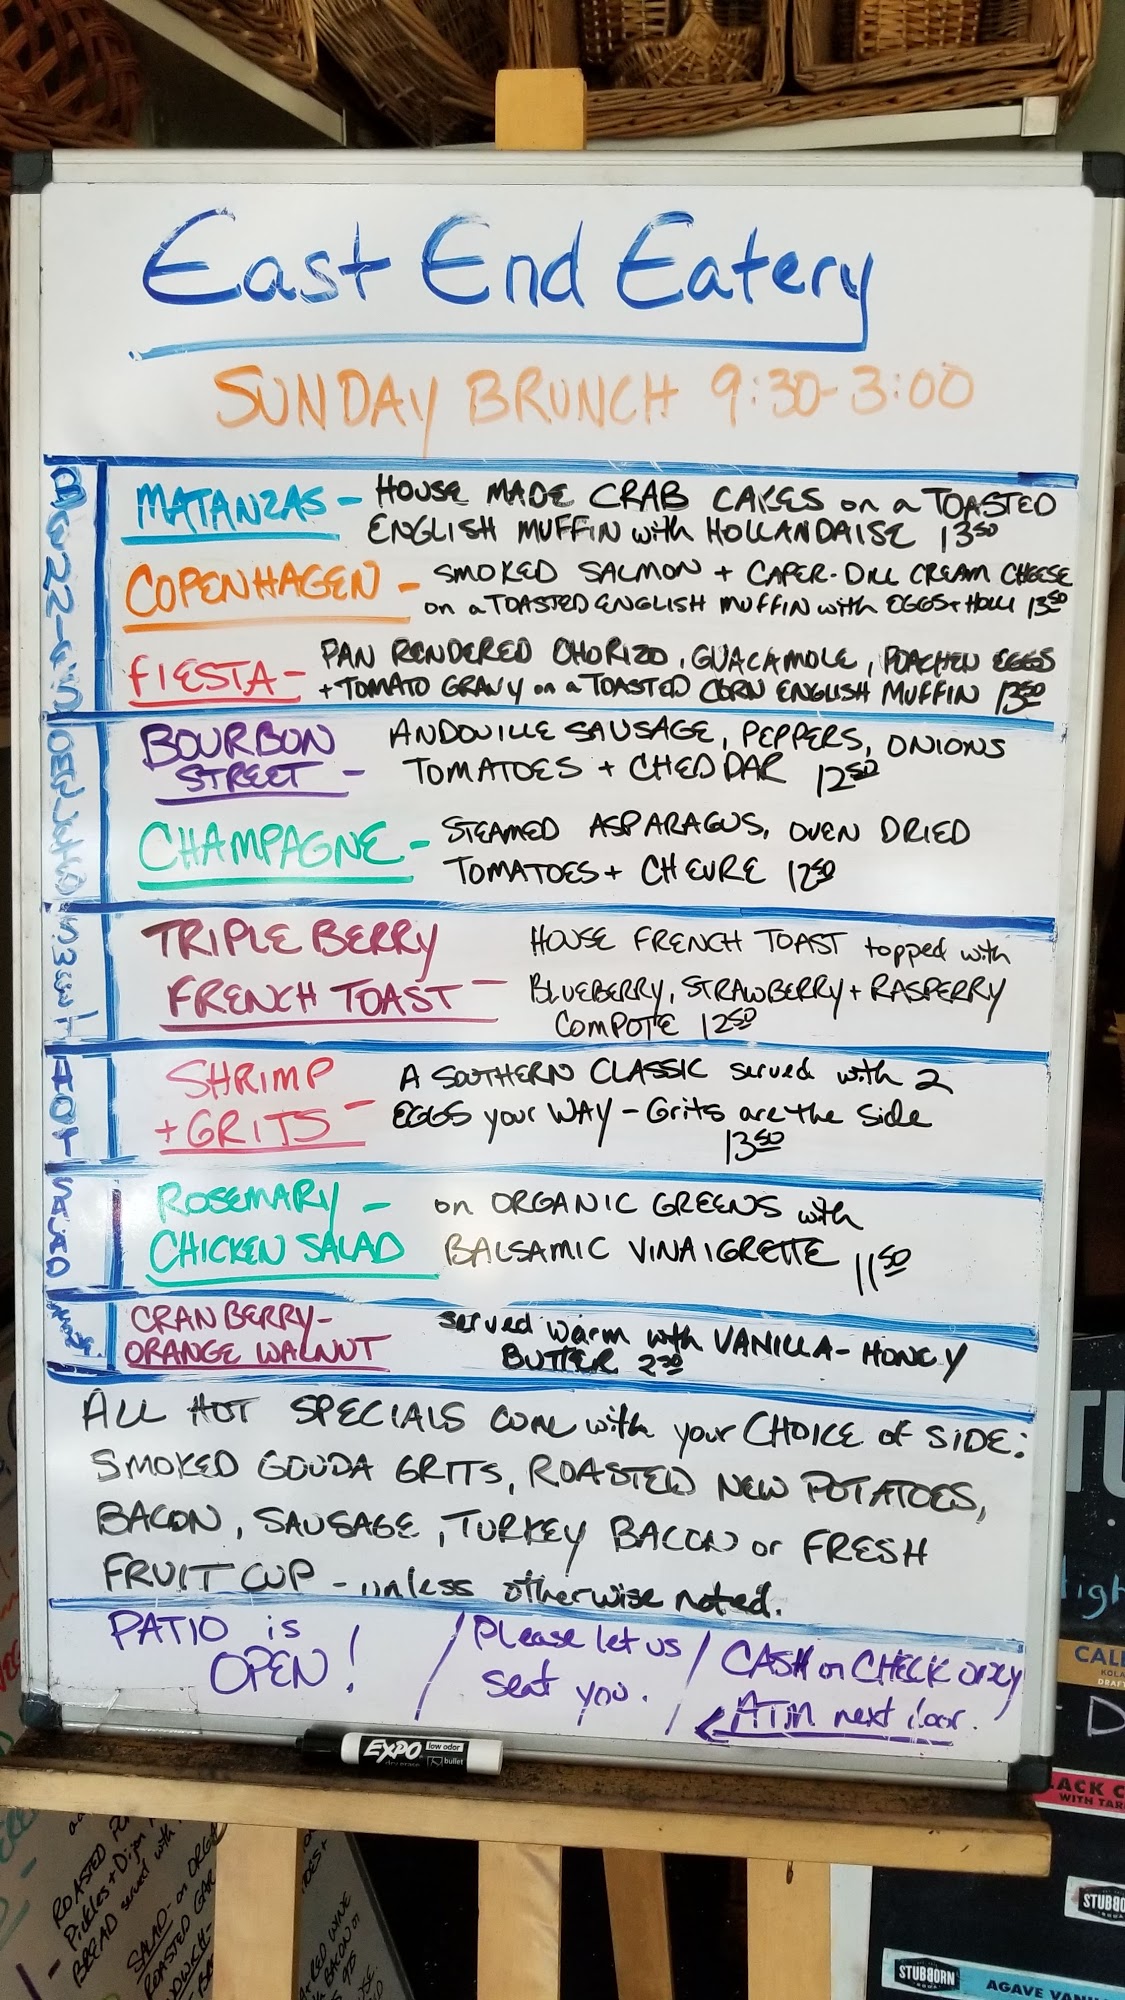 East End Eatery
SUNDAY BRUNCH 9:30-3:00
MATANZAS - HOUSE MADE CRAB CAKES on a TOASTED
ENGLISH MUFFIN with HOLLANDAISE 13 50
COPENHAGEN - SMOKED SALMON + CAPER-DILL CREAM CHEESE
on a TOASTED ENGLISH MUFFIN with EGGS + HOLLI 13 50
FIESTA - PAN RENDERED CHORIZO, GUACAMOLE, POACHED EGGS
+ TOMATO GRAVY on a TOASTED CORN ENGLISH MUFFIN 13 50
BOURBON
STREET - ANDOUILLE SAUSAGE, PEPPERS, ONIONS
TOMATOES + CHEDDAR 12 50
CHAMPAGNE - STEAMED ASPARAGUS, OVEN DRIED
TOMATOES + CHEVRE 12 50
SWEET
TRIPLE BERRY
FRENCH TOAST - HOUSE FRENCH TOAST topped with
BLUEBERRY, STRAWBERRY + RASPERRY
COMPOTE 12 50
HOT
SHRIMP
+ GRITS - A SOUTHERN CLASSIC served with 2
EGGS your WAY - Grits are the side
13 50
SALAD
ROSEMARY -
CHICKEN SALAD on ORGANIC GREENS with
BALSAMIC VINAIGRETTE 11 50
CRANBERRY-
ORANGE WALNUT served warm with VANILLA-HONEY
BUTTER
ALL HOT SPECIALS come with your CHOICE of SIDE:
SMOKED GOUDA GRITS, ROASTED NEW POTATOES,
BACON, SAUSAGE, TURKEY BACON or FRESH
FRUIT CUP - unless otherwise noted.
PATIO is
OPEN!
/ Please let us
seat you.
/ CASH or CHECK only
ATM next door.
EXPO
low odor
dry erase
bullet
ROASTED
Pickles + Dijon
BREAD served with
SALAD - on
ROASTED
RED WINE
BACON or
KOLA
DRAFT
WITH TAR
STUBBORN
AGAVE VANI